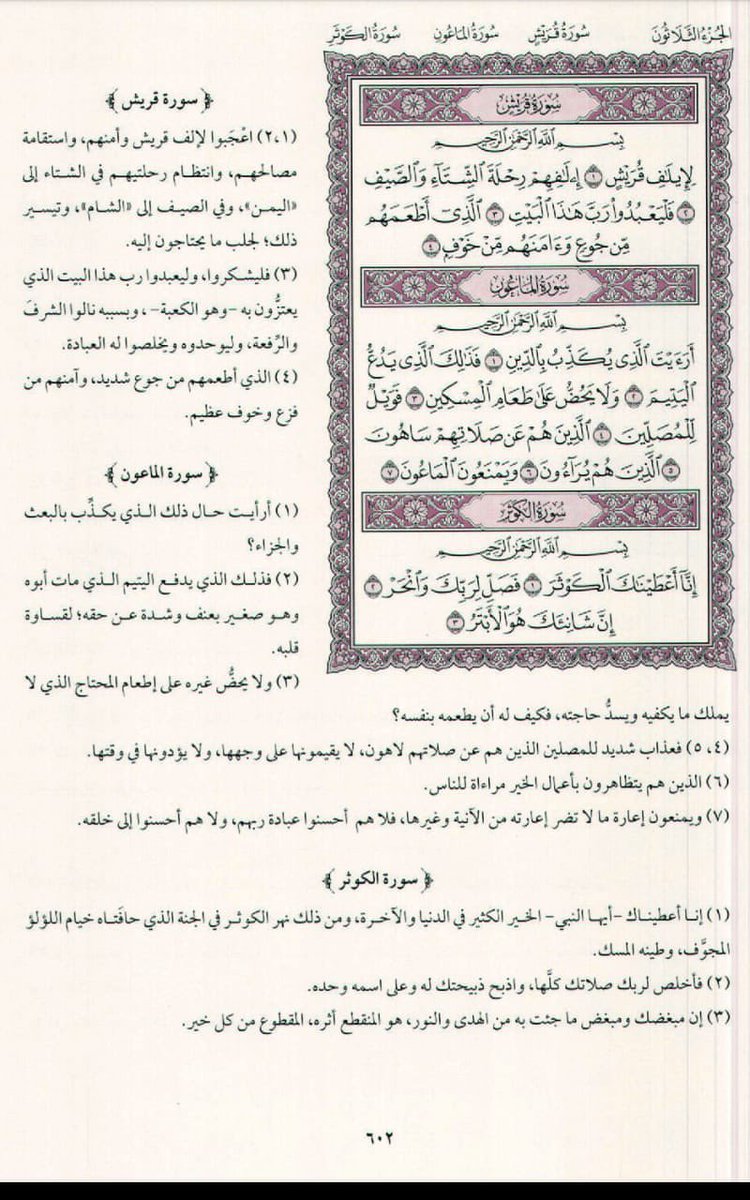 الجُزْءُ الثَّلَاثُونَ سُورَةُ قُرَيْشٍ سُورَةُ المَاعُونِ سُورَةُ الكَوْثَرِ
سُورَةُ قُرَيْشٍ
بِسْمِ اللَّهِ الرَّحْمَٰنِ الرَّحِيمِ
لِإِيلَٰفِ قُرَيْشٍ ١ إِۦلَٰفِهِمْ رِحْلَةَ ٱلشِّتَآءِ وَٱلصَّيْفِ
٢ فَلْيَعْبُدُوا۟ رَبَّ هَٰذَا ٱلْبَيْتِ ٣ ٱلَّذِىٓ أَطْعَمَهُم
مِّن جُوعٍ وَءَامَنَهُم مِّنْ خَوْفٍۭ ٤
سُورَةُ المَاعُونِ
بِسْمِ اللَّهِ الرَّحْمَٰنِ الرَّحِيمِ
أَرَءَيْتَ ٱلَّذِى يُكَذِّبُ بِٱلدِّينِ ١ فَذَٰلِكَ ٱلَّذِى يَدُعُّ
ٱلْيَتِيمَ ٢ وَلَا يَحُضُّ عَلَىٰ طَعَامِ ٱلْمِسْكِينِ ٣ فَوَيْلٌ
لِّلْمُصَلِّينَ ٤ ٱلَّذِينَ هُمْ عَن صَلَاتِهِمْ سَاهُونَ
٥ ٱلَّذِينَ هُمْ يُرَآءُونَ ٦ وَيَمْنَعُونَ ٱلْمَاعُونَ ٧
سُورَةُ الكَوْثَرِ
بِسْمِ اللَّهِ الرَّحْمَٰنِ الرَّحِيمِ
إِنَّآ أَعْطَيْنَٰكَ ٱلْكَوْثَرَ ١ فَصَلِّ لِرَبِّكَ وَٱنْحَرْ ٢
إِنَّ شَانِئَكَ هُوَ ٱلْأَبْتَرُ ٣
﴿ سورة قريش ﴾
(٢،١) اعْجَبوا لإلف قريش وأمنهم، واستقامة
مصالحهم، وانتظام رحلتيهم في الشتاء إلى
«اليمن»، وفي الصيف إلى «الشام»، وتيسير
ذلك؛ لجلب ما يحتاجون إليه.
(٣) فليشكروا، وليعبدوا رب هذا البيت الذي
يعتزُّون به -وهو الكعبة-، وبسببه نالوا الشرفَ
والرِّفعة، وليوحدوه ويخلصوا له العبادة.
(٤) الذي أطعمهم من جوع شديد، وآمنهم من
فزع وخوف عظيم.
﴿ سورة الماعون ﴾
(١) أرأيت حال ذلك الذي يكذِّب بالبعث
والجزاء؟
(٢) فذلك الذي يدفع اليتيم الذي مات أبوه
وهو صغير بعنف وشدة عن حقه؛ لقساوة
قلبه.
(٣) ولا يحضُّ غيره على إطعام المحتاج الذي لا
يملك ما يكفيه ويسدُّ حاجته، فكيف له أن يطعمه بنفسه؟
(٤، ٥) فعذاب شديد للمصلين الذين هم عن صلاتهم لاهون، لا يقيمونها على وجهها، ولا يؤدونها في وقتها.
(٦) الذين هم يتظاهرون بأعمال الخير مراءاة للناس.
(٧) ويمنعون إعارة ما لا تضر إعارته من الآنية وغيرها، فلا هم أحسنوا عبادة ربهم، ولا هم أحسنوا إلى خلقه.
﴿ سورة الكوثر ﴾
(١) إنا أعطيناك -أيها النبي- الخير الكثير في الدنيا والآخرة، ومن ذلك نهر الكوثر في الجنة الذي حافَتاه خيام اللؤلؤ
المجوَّف، وطينه المسك.
(٢) فأخلص لربك صلاتك كلَّها، واذبح ذبيحتك له وعلى اسمه وحده.
(٣) إن مبغضك ومبغض ما جئت به من الهدى والنور، هو المنقطع أثره، المقطوع من كل خير.
٦٠٢